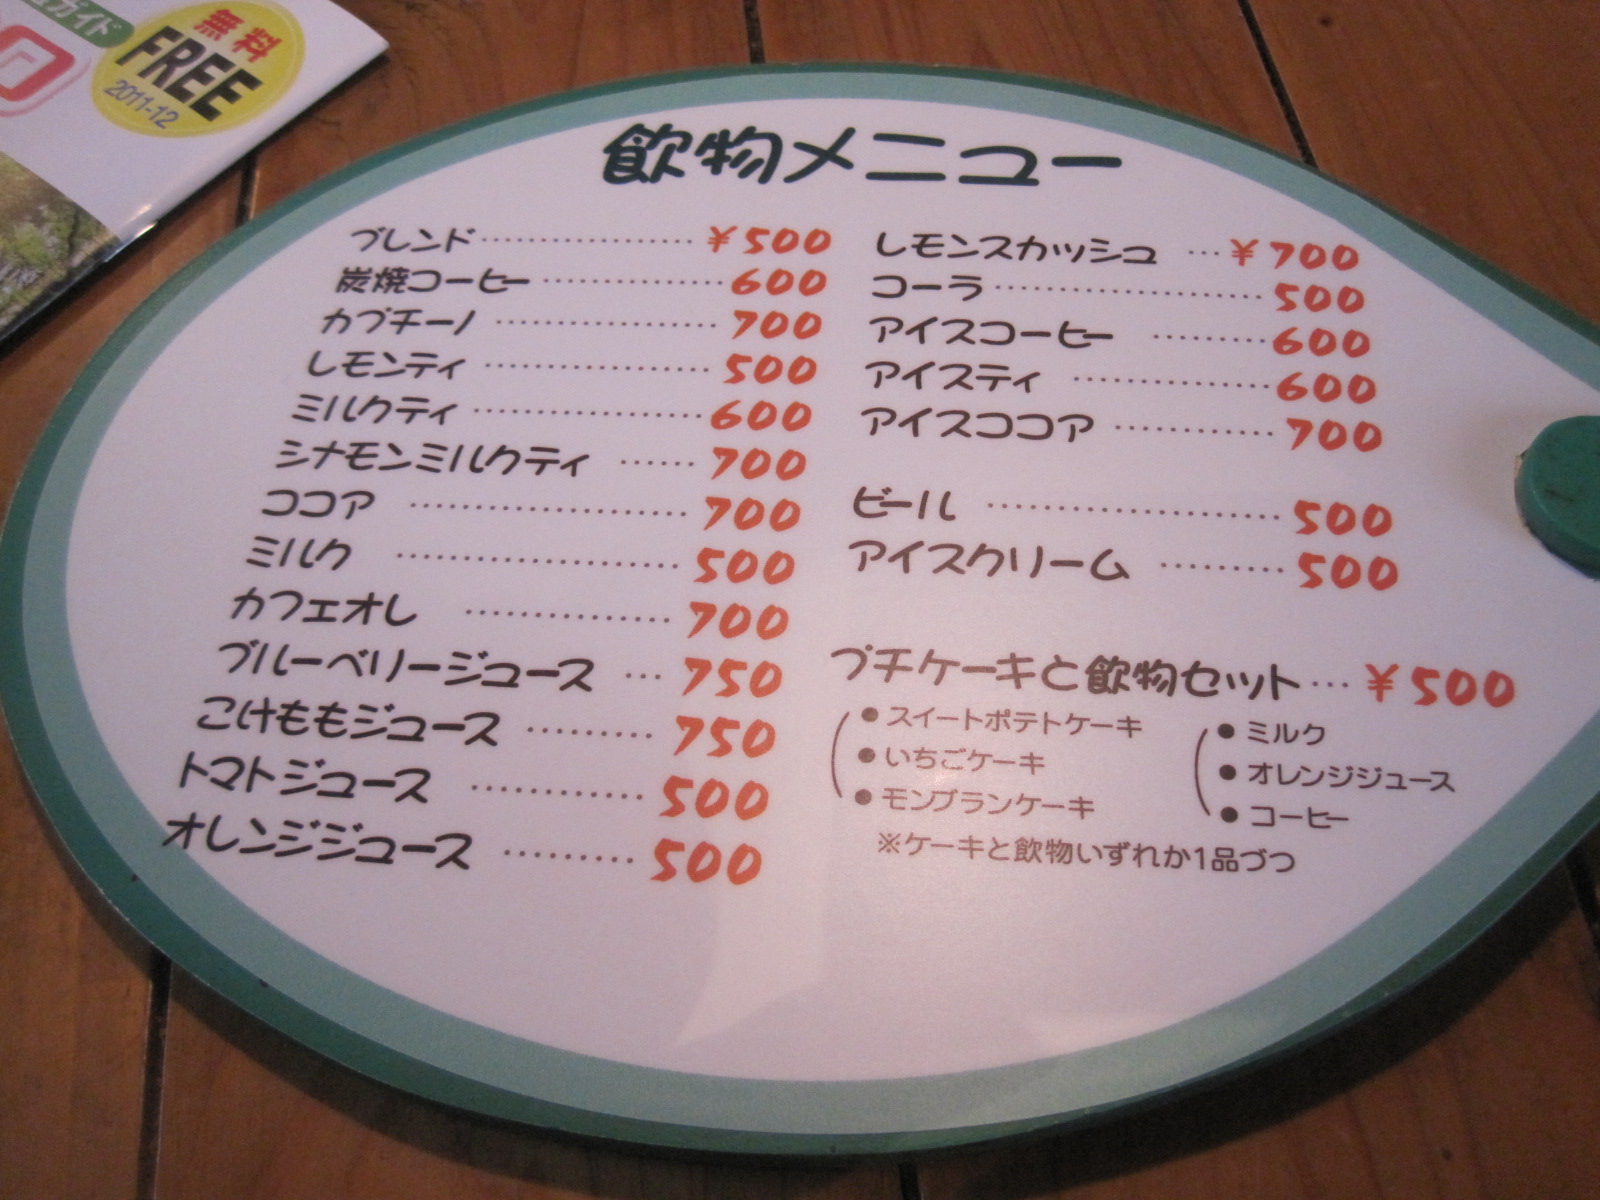 ガイド
無料
FREE
2011-12
飲物メニュー
ブレンド ………………… ¥500
炭焼コーヒー ……………… 600
カプチーノ ………………… 700
レモンティ ………………… 500
ミルクティ ………………… 600
シナモンミルクティ …… 700
ココア ……………………… 700
ミルク ……………………… 500
カフェオレ ……………… 700
ブルーベリージュース … 750
こけももジュース ……… 750
トマトジュース ………… 500
オレンジジュース ……… 500
レモンスカッシュ … ¥700
コーラ ……………………… 500
アイスコーヒー ……… 600
アイスティ …………… 600
アイスココア ………… 700
ビール ………………… 500
アイスクリーム ……… 500
プチケーキと飲物セット … ¥500
● スイートポテトケーキ
● いちごケーキ
● モンブランケーキ
● ミルク
● オレンジジュース
● コーヒー
※ケーキと飲物いずれか1品づつ